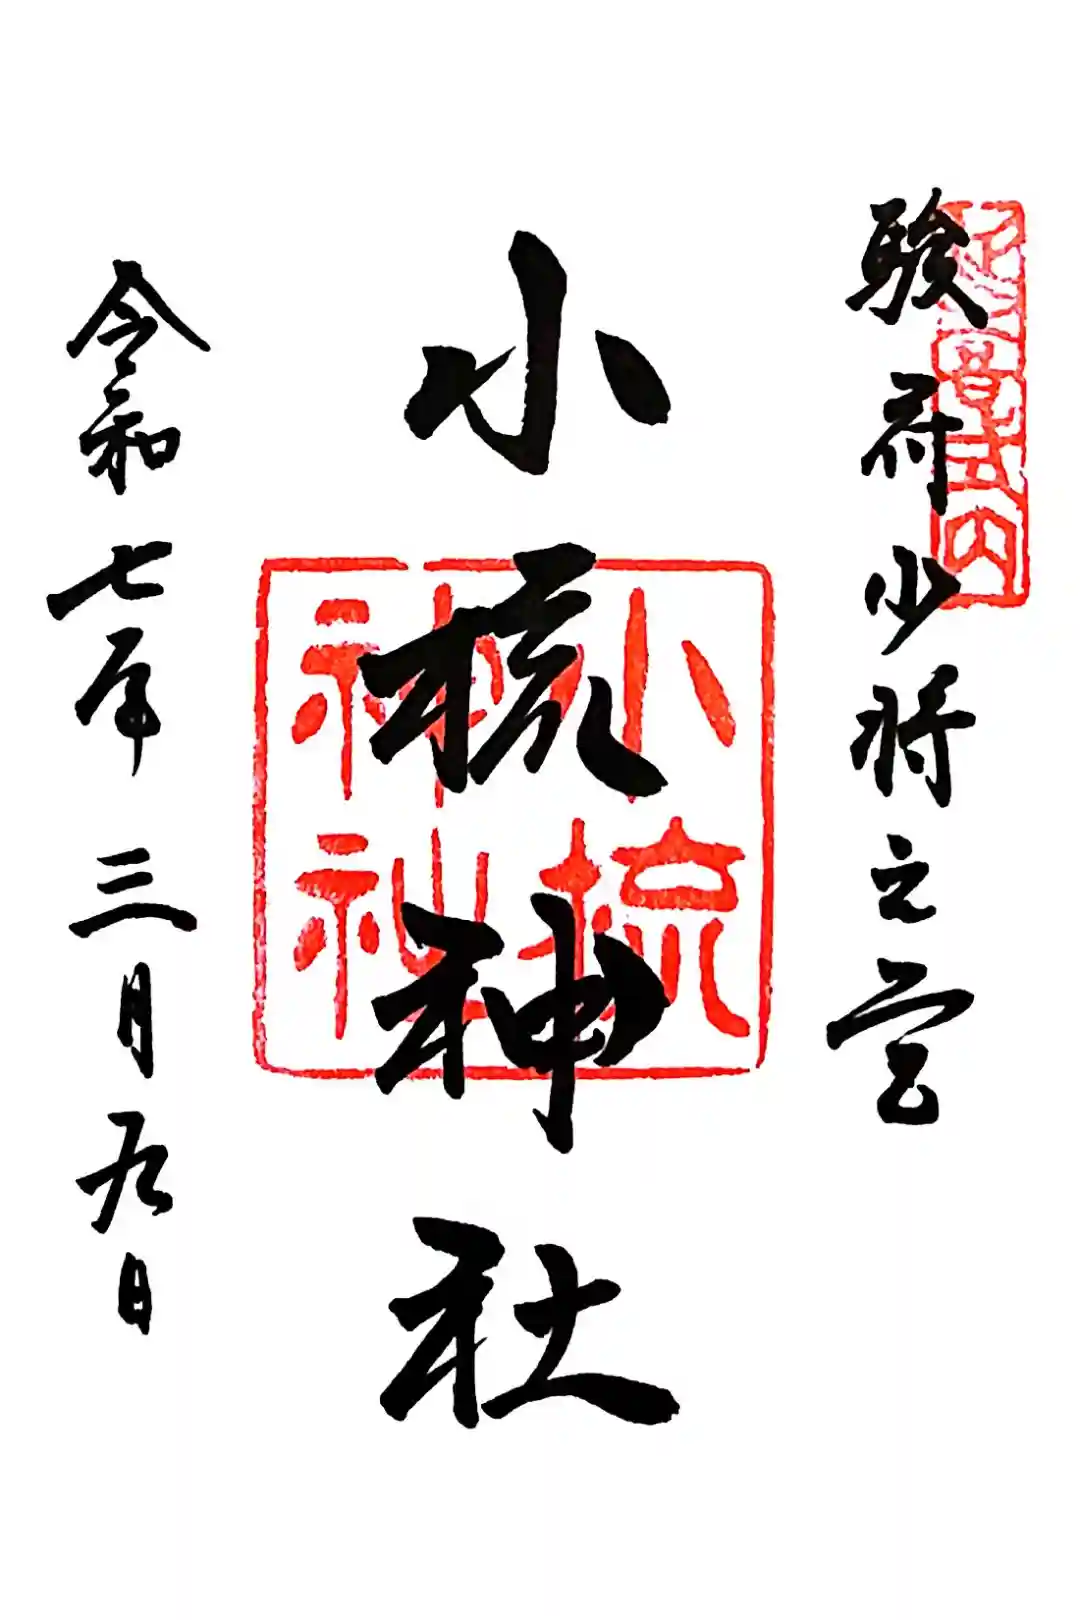 延喜式内
駿府少将之宮
小梳神社
小梳神社
令和七年三月九日